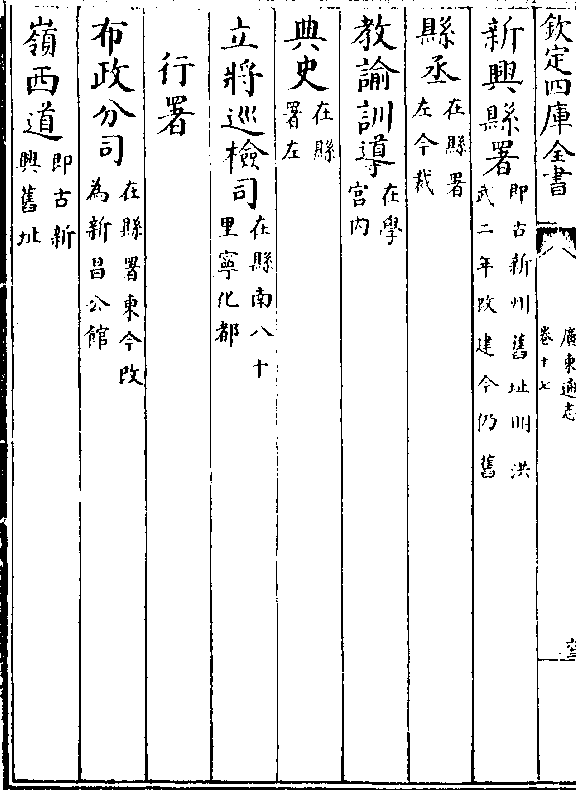 欽定四庫全書
廣東通志
卷十七
新興縣署即古新州舊址明洪武二年改建今仍舊
縣丞在縣署左今裁
教諭訓導在學宫内
典史在縣署左
立將巡檢司在縣南八十里寧化都
行署
布政分司在縣署東今改為新昌公館
嶺西道即古新興舊址